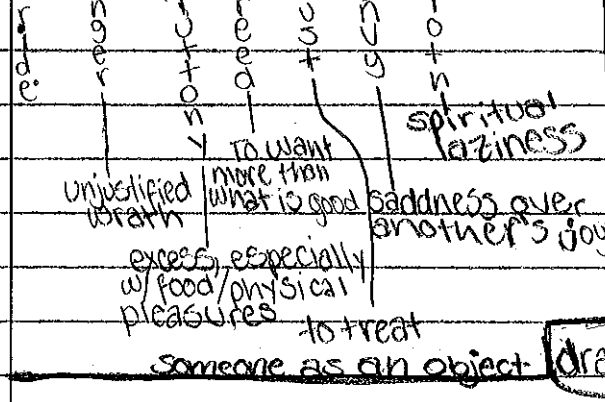 ride
nger
utton y
reed
ust
nvy
loth
spiritual
laziness
unjustified
wrath
to want
more than
what is good
saddness over
another's joy
excess, especially
w/ food/physical
pleasures
to treat
someone as an object
dra